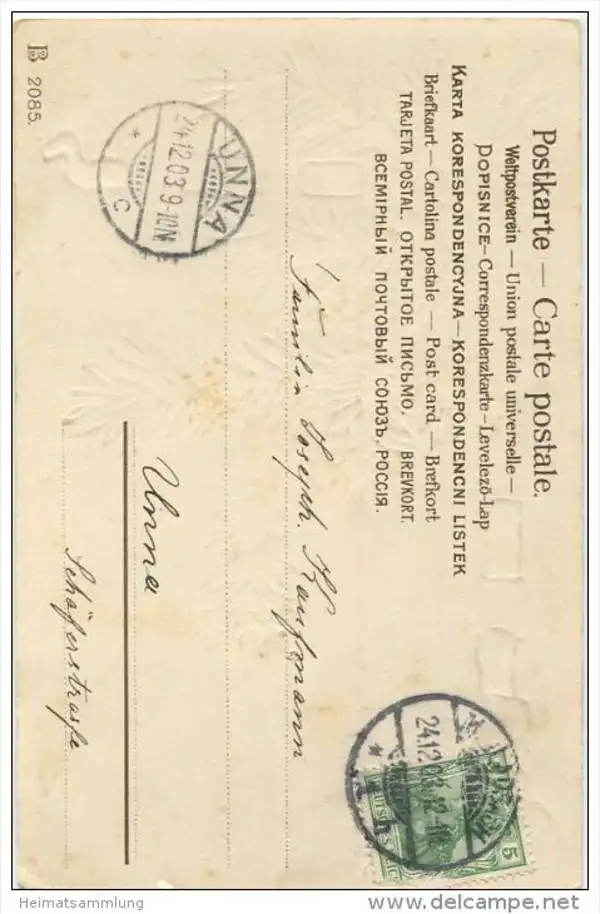 Postkarte — Carte postale.
Weltpostverein — Union postale universelle —
DOPISNICE — Correspondenzkarte — Levelező-Lap
KARTA KORESPONDENCYJNA — KORESPONDENCNI LISTEK
Briefkaart — Cartolina postale — Post card — Brefkort
TARJETA POSTAL. ОТКРЫТОЕ ПИСЬМО. BREVKORT.
ВСЕМІРНЫЙ ПОЧТОВЫЙ СОЮЗЪ. РОССІЯ.
UNNA
24.12.03 9-10N
* C
24.12.03. 12-1N
* h
5
Familie Joseph Kaufmann
Unna
Schäferstraße
B 2085.
Heimatsammlung
www.delcampe.net